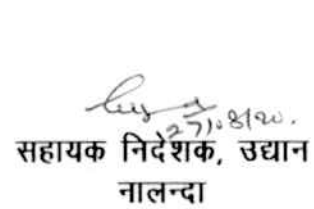 27/08/20.
सहायक निदेशक, उद्यान
नालन्दा